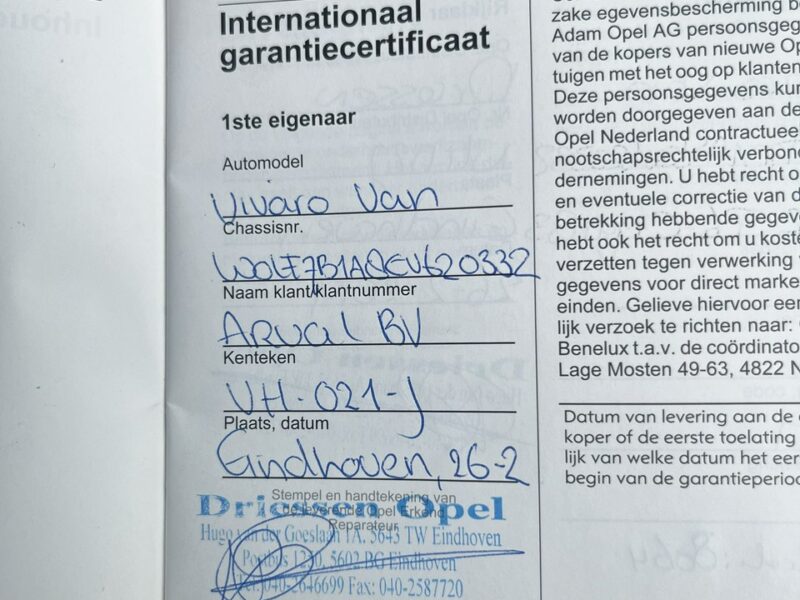 Internationaal
garantiecertificaat
1ste eigenaar
Automodel
Vivaro Van
Chassisnr.
W0LF7B1A8EV620332
Naam klant/klantnummer
Arval BV
Kenteken
VH-021-J
Plaats, datum
Eindhoven, 26-2
Stempel en handtekening van
de leverende Opel Erkend
Reparateur
Driessen Opel
Hugo van der Goeslaan 1A, 5643 TW Eindhoven
Postbus 1230, 5602 BG Eindhoven
Tel: 040-2646699 Fax: 040-2587720
zake egevensbescherming
Adam Opel AG persoonsgeg
van de kopers van nieuwe Op
tuigen met het oog op klanten
Deze persoonsgegevens kun
worden doorgegeven aan de
Opel Nederland contractuee
nootschapsrechtelijk verbond
dernemingen. U hebt recht o
en eventuele correctie van d
betrekking hebbende gegev
hebt ook het recht om u koste
verzetten tegen verwerking
gegevens voor direct marke
einden. Gelieve hiervoor een
lijk verzoek te richten naar:
Benelux t.a.v. de coördinato
Lage Mosten 49-63, 4822 N
Datum van levering aan de
koper of de eerste toelating
lijk van welke datum het eer
begin van de garantieperiod